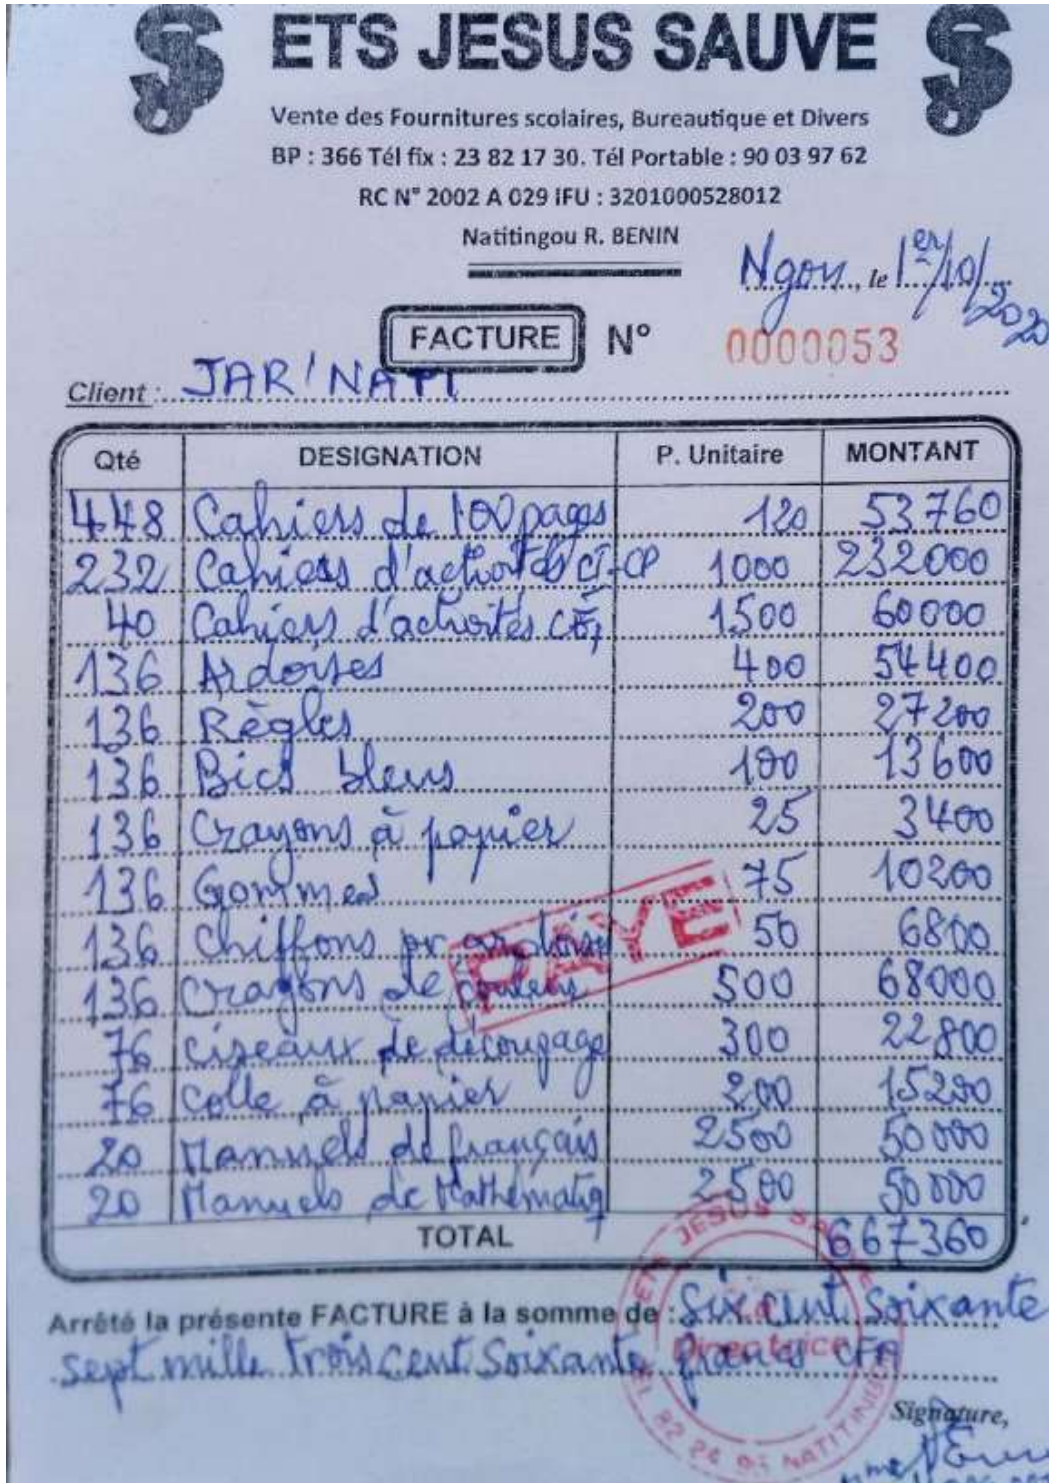 ETS JESUS SAUVE
Vente des Fournitures scolaires, Bureautique et Divers
BP : 366 Tél fix : 23 82 17 30. Tél Portable : 90 03 97 62
RC N° 2002 A 029 IFU : 3201000528012
Natitingou R. BENIN
Ngou, le 1er/10/2020
FACTURE N° 0000053
Client : JAR'NATI
Qté DESIGNATION P. Unitaire MONTANT
448 Cahiers de 100 pages 120 53760
232 Cahiers d'activités CI-CP 1000 232000
40 Cahiers d'activités CE1 1500 60000
136 Ardoises 400 54400
136 Règles 200 27200
136 Bics bleus 100 13600
136 Crayons à papier 25 3400
136 Gommes 75 10200
136 Chiffons pr ardoises 50 6800
136 Crayons de couleurs 500 68000
76 Ciseaux de découpage 300 22800
76 Colle à papier 200 15200
20 Manuels de français 2500 50000
20 Manuels de Mathématiq 2500 50000
PAYE
TOTAL 667360
Arrêté la présente FACTURE à la somme de : Six cent Soixante
sept mille trois cent Soixante francs CFA
ETS JESUS SAUVE
La Directrice
NATITING
Signature,
Mme